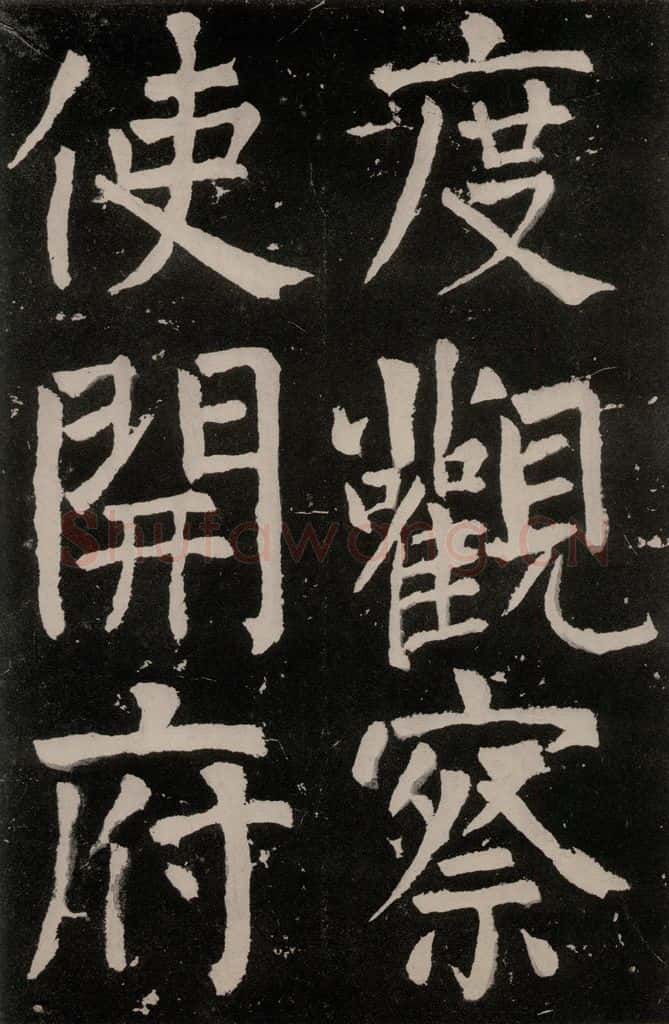 度觀察
使開府
Shufawang.CN